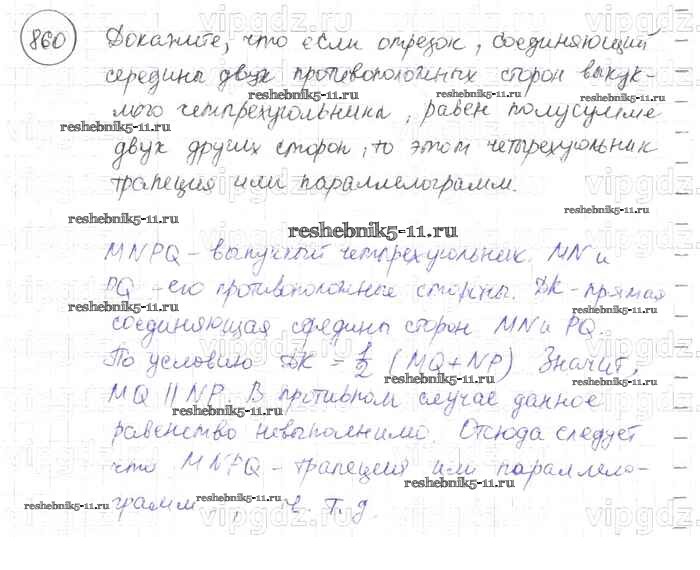 860 Докажите, что если отрезок, соединяющий
середины двух противоположных сторон выпук-
лого четырехугольника, равен полусумме
двух других сторон, то этот четырехугольник
трапеция или параллелограмм.
reshebnik5-11.ru
MNPQ - выпуклый четырехугольник. MN и
PQ - его противоположные стороны. DK - прямая
соединяющая середины сторон MN и PQ.
По условию DK = 1/2 (MQ + NP) Значит,
MQ || NP. В противном случае данное
равенство невыполнимо. Отсюда следует
что MNPQ - трапеция или параллело-
грамм, ч. т. д.